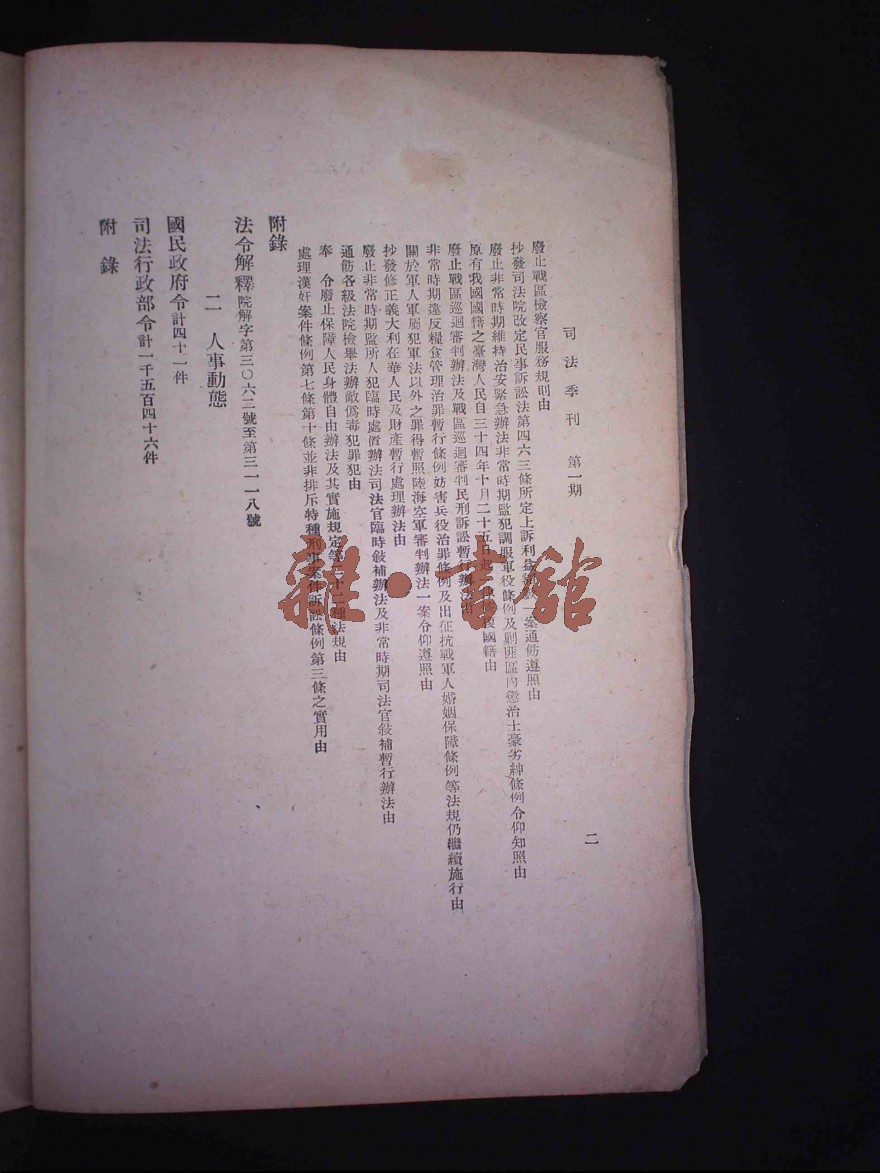 司法季刊 第一期
二
廢止戰區檢察官服務規則由
抄發司法院改定民事訴訟法第四六三條所定上訴利益額數一案通飭遵照由
廢止非常時期維持治安緊急辦法非常時期監犯調服軍役條例及剿匪區內懲治土豪劣紳條例令仰知照由
原有我國國籍之臺灣人民自三十四年十月二十五日起一律恢復國籍由
廢止戰區巡迴審判辦法及戰區巡迴審判民刑訴訟暫行辦法由
非常時期違反糧食管理治罪暫行條例妨害兵役治罪條例及出征抗戰軍人婚姻保障條例等法規仍繼續施行由
關於軍人軍屬犯軍法以外之罪得暫照陸海空軍審判辦法一案令仰遵照由
抄發修正義大利在華人民及財產暫行處理辦法由
廢止非常時期監所人犯臨時處置辦法司法官臨時敍補辦法及非常時期司法官敍補暫行辦法由
通飭各級法院檢舉法辦敵僞毒犯罪犯由
奉 令廢止保障人民身體自由辦法及其實施規定等三十二種法規由
處理漢奸案件條例第七條第十條並非排斥特種刑事案件訴訟條例第三條之實用由
附錄
法令解釋院解字第三〇六二號至第三一一八號
二 人事動態
國民政府令計四十一件
司法行政部令計一千五百四十六件
附錄
雜·書館